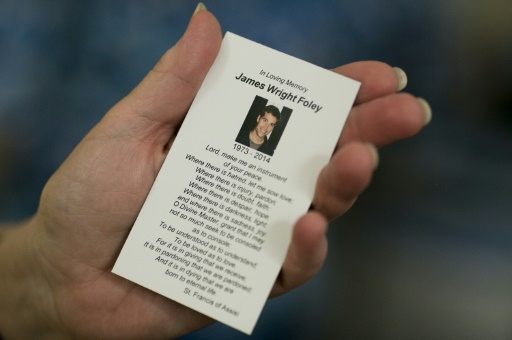 In Loving Memory
James Wright Foley
1973 - 2014
Lord, make me an instrument
of your peace.
Where there is hatred, let me sow love.
Where there is injury, pardon.
Where there is doubt, faith.
Where there is despair, hope.
Where there is darkness, light.
and where there is sadness, joy.
O Divine Master, grant that I may
not so much seek to be consoled
as to console.
To be understood as to understand.
To be loved as to love.
For it is in giving that we receive.
It is in pardoning that we are pardoned.
And it is in dying that we are
born to eternal life.
St. Francis of Assisi